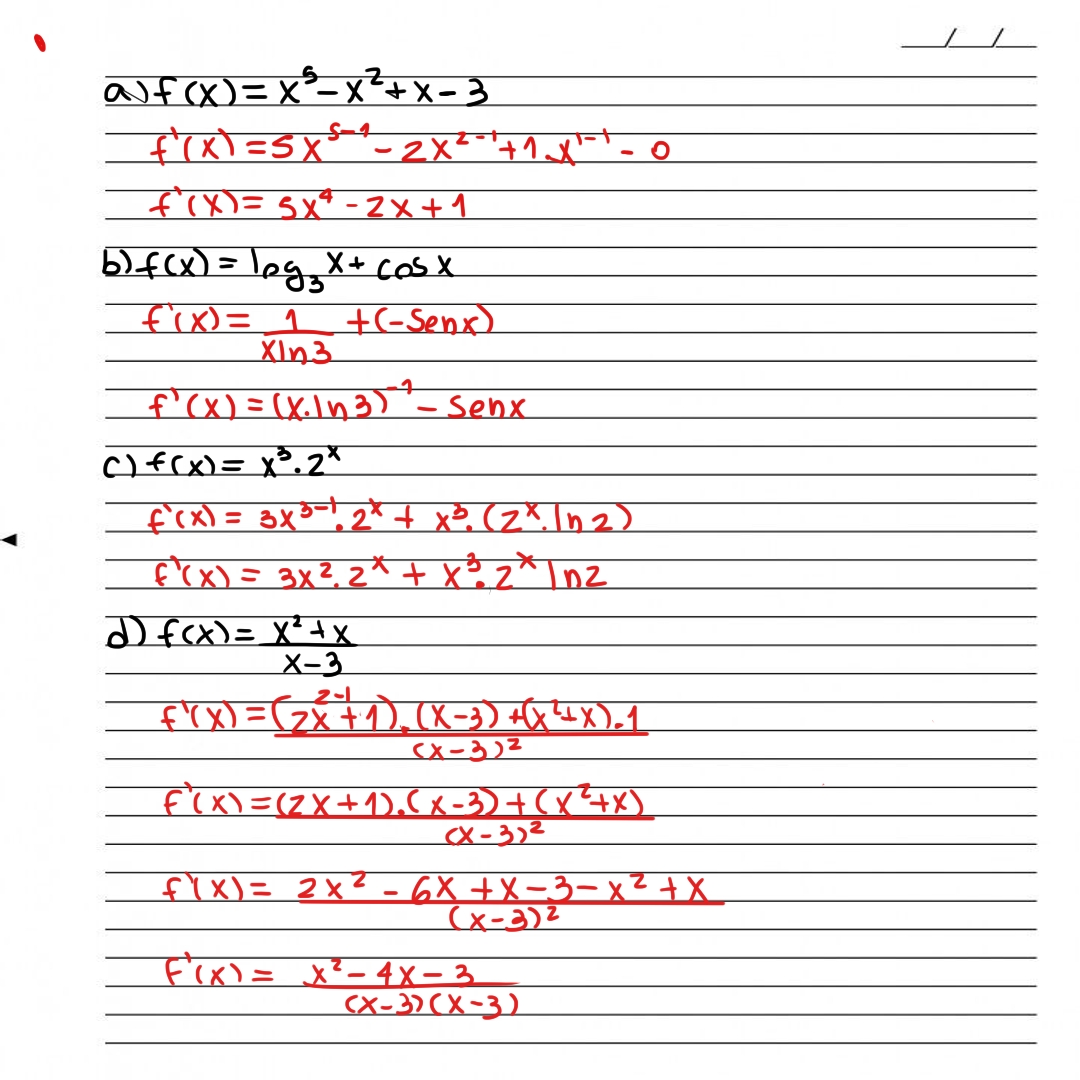 a) f(x) = x⁵ - x² + x - 3
f'(x) = 5x⁵⁻¹ - 2x²⁻¹ + 1.x¹⁻¹ - 0
f'(x) = 5x⁴ - 2x + 1
b) f(x) = log₃ x + cos x
f'(x) = 1/(x ln 3) + (-sen x)
f'(x) = (x.ln 3)⁻¹ - sen x
c) f(x) = x³.2ˣ
f'(x) = 3x³⁻¹.2ˣ + x³.(2ˣ.ln 2)
f'(x) = 3x².2ˣ + x³.2ˣ ln 2
d) f(x) = (x² + x)/(x - 3)
f'(x) = ((2x²⁻¹ + 1).(x - 3) + (x² + x).1)/(x - 3)²
f'(x) = ((2x + 1).(x - 3) + (x² + x))/(x - 3)²
f'(x) = (2x² - 6x + x - 3 - x² + x)/(x - 3)²
f'(x) = (x² - 4x - 3)/((x - 3)(x - 3))